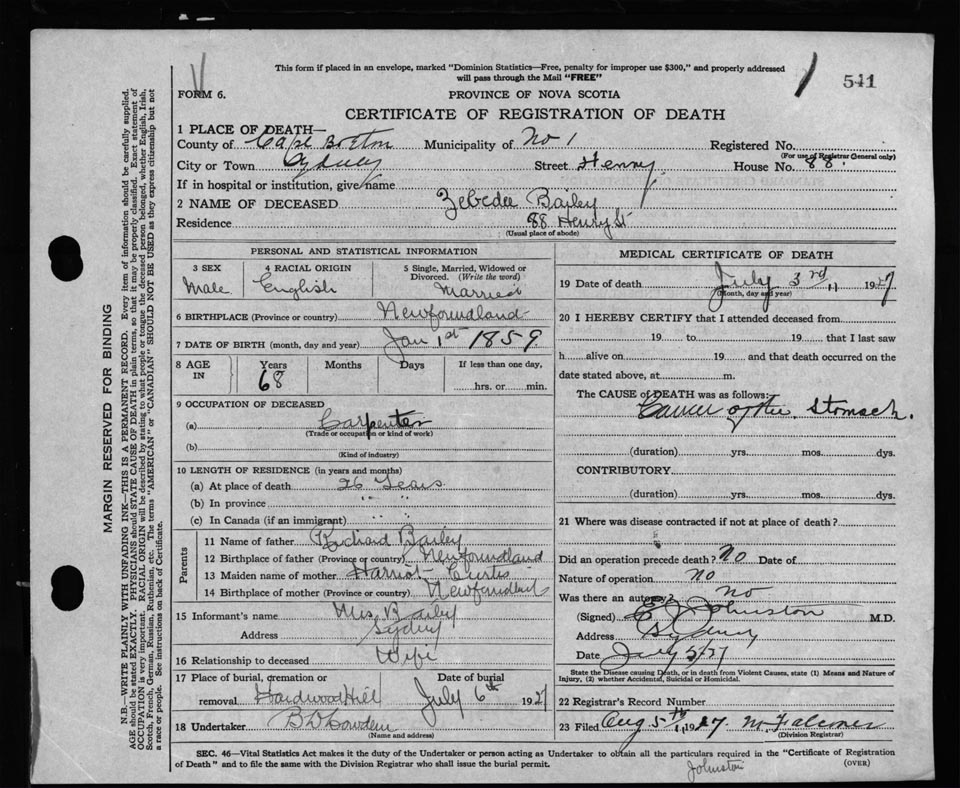 This form if placed in an envelope, marked "Dominion Statistics—Free, penalty for improper use $300," and properly addressed
will pass through the Mail "FREE"
541
FORM 6.
PROVINCE OF NOVA SCOTIA
CERTIFICATE OF REGISTRATION OF DEATH
1 PLACE OF DEATH—
County of Cape Breton Municipality of No 1 Registered No.
(For use of Registrar General only)
City or Town Sydney Street Henry House No. 88
If in hospital or institution, give name
2 NAME OF DECEASED Zebedee Bailey
Residence 88 Henry St
(Usual place of abode)
PERSONAL AND STATISTICAL INFORMATION
3 SEX 4 RACIAL ORIGIN 5 Single, Married, Widowed or
Divorced. (Write the word)
Male English Married
6 BIRTHPLACE (Province or country) Newfoundland
7 DATE OF BIRTH (month, day and year) Jan 1st 1859
8 AGE IN Years Months Days If less than one day,
68 hrs. or min.
9 OCCUPATION OF DECEASED
(a) Carpenter
(Trade or occupation or kind of work)
(b)
(Kind of industry)
10 LENGTH OF RESIDENCE (in years and months)
(a) At place of death 26 Years
(b) In province " "
(c) In Canada (if an immigrant) " "
Parents
11 Name of father Richard Bailey
12 Birthplace of father (Province or country) Newfoundland
13 Maiden name of mother Harriot Curtis
14 Birthplace of mother (Province or country) Newfoundland
15 Informant's name Mrs. Bailey
Address Sydney
16 Relationship to deceased Wife
17 Place of burial, cremation or Date of burial
removal Hardwood Hill July 6th 1927
18 Undertaker
(Name and address)
MEDICAL CERTIFICATE OF DEATH
19 Date of death July 3rd 1927
(Month, day and year)
20 I HEREBY CERTIFY that I attended deceased from
19 to 19 that I last saw
h alive on 19 and that death occurred on the
date stated above, at m.
The CAUSE of DEATH was as follows:
Cancer of the Stomach.
(duration) yrs. mos. dys.
CONTRIBUTORY
(duration) yrs. mos. dys.
21 Where was disease contracted if not at place of death?
Did an operation precede death? No Date of
Nature of operation No
Was there an autopsy? No
(Signed) Johnston M.D.
Address Sydney
Date July 5/27
State the Disease causing Death, or in death from Violent Causes, state (1) Means and Nature of
Injury, (2) whether Accidental, Suicidal or Homicidal.
22 Registrar's Record Number
23 Filed Aug 5th 1927 Falconer
(Division Registrar)
SEC. 46—Vital Statistics Act makes it the duty of the Undertaker or person acting as Undertaker to obtain all the particulars required in the "Certificate of Registration
of Death" and to file the same with the Division Registrar who shall issue the burial permit. (OVER)
Johnston
MARGIN RESERVED FOR BINDING
N.B.—WRITE PLAINLY WITH UNFADING INK—THIS IS A PERMANENT RECORD. Every item of information should be carefully supplied.
AGE should be stated EXACTLY. PHYSICIANS should STATE CAUSE OF DEATH in plain terms, so that it may be properly classified. Exact statement of
OCCUPATION is very important. RACIAL ORIGIN will be described by stating to what people or tongue the deceased person belonged, whether English, Irish,
Scotch, French, German, Russian, Ruthenian, etc. The terms "AMERICAN" or "CANADIAN" SHOULD NOT BE USED as they express citizenship but not
a race or people. See instructions on back of Certificate.